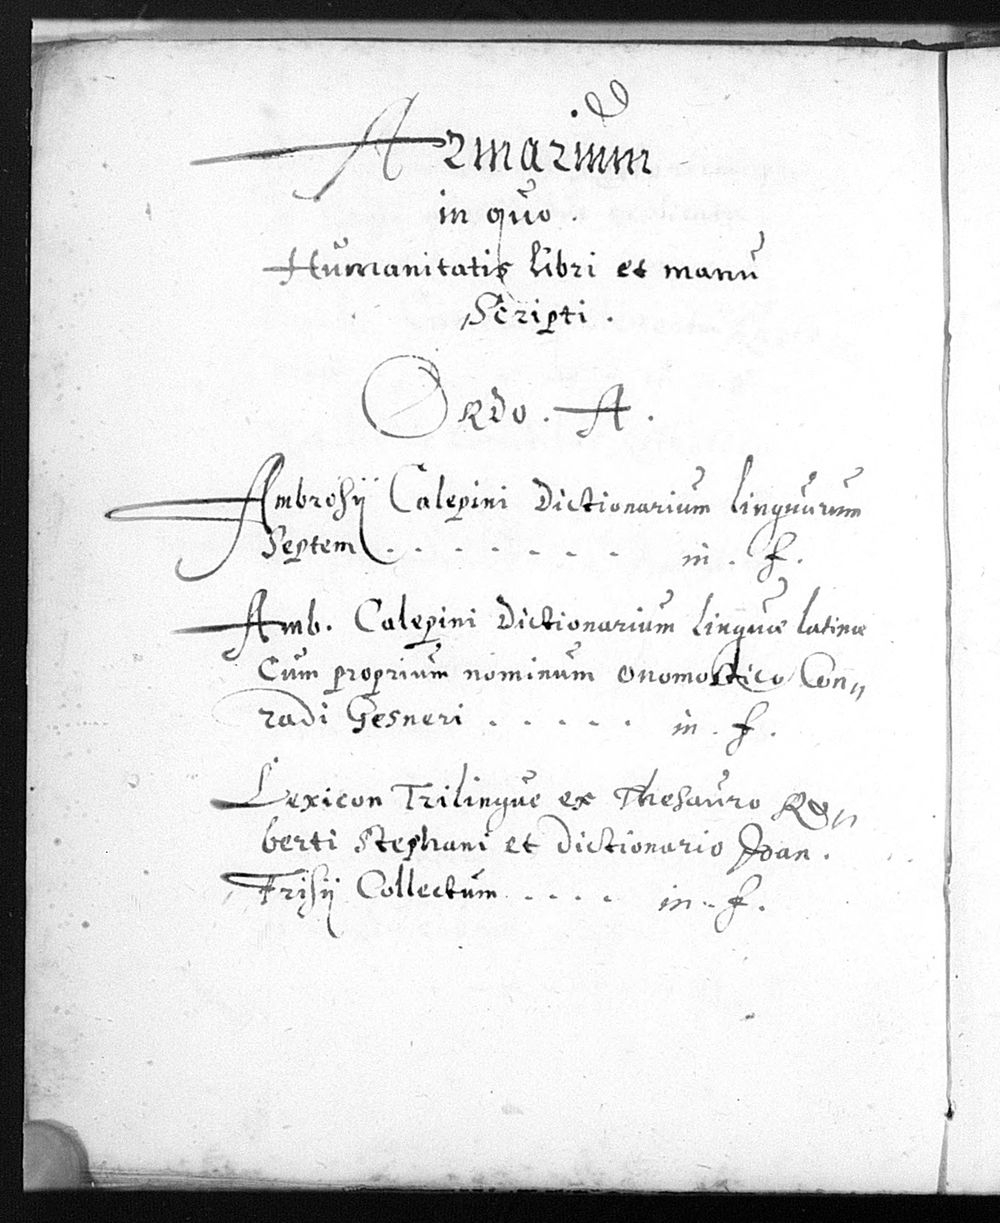 Armarium
in quo.
Humanitatis libri et manu
Scripti.
Ordo. A.
Ambrosij Calepini Dictionarium linguarum
Septem . . . . . . . in. f.
Amb. Calepini Dictionarium linguæ latinæ
Cum proprium nominum onomostico Con„
radi Gesneri . . . . . in. f.
Lexicon Trilingue ex Thesauro Ro„
berti Stephani et Dictionario Joan.
Frisij Collectum . . . . in. f.